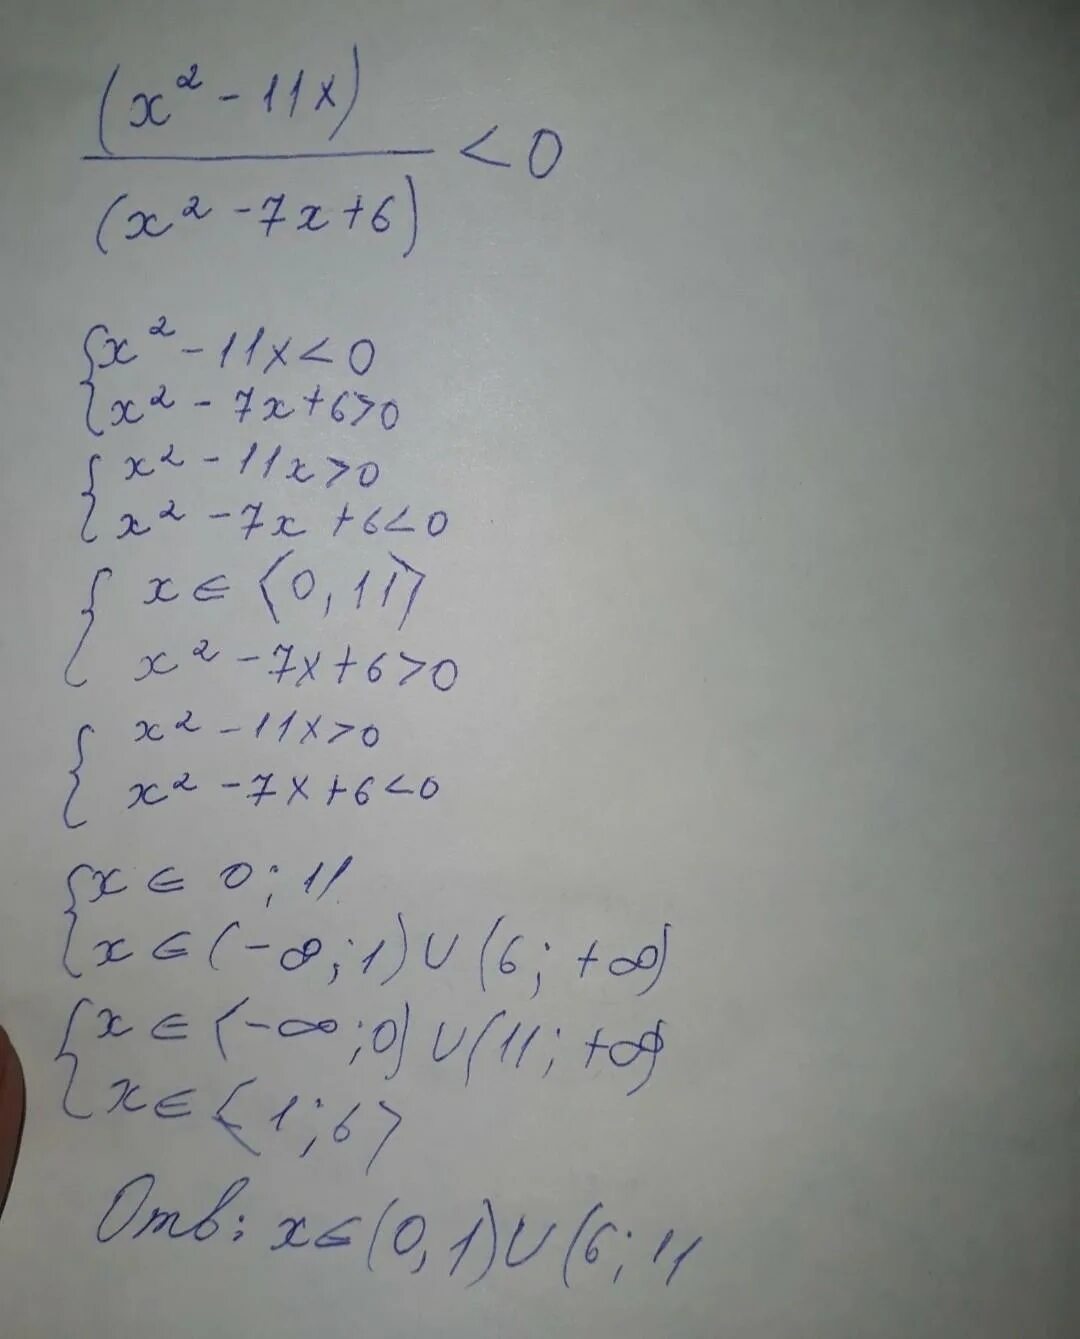 (x² - 11x)
/(x² - 7x + 6) < 0
{x² - 11x < 0
{x² - 7x + 6 > 0
{x² - 11x > 0
{x² - 7x + 6 < 0
{x ∈ ⟨0, 11⟩
{x² - 7x + 6 > 0
{x² - 11x > 0
{x² - 7x + 6 < 0
{x ∈ 0; 11
{x ∈ (-∞; 1) ∪ (6; +∞)
{x ∈ ⟨-∞; 0) ∪ (11; +∞)
{x ∈ ⟨1; 6⟩
Отв: x ∈ (0, 1) ∪ (6; 11